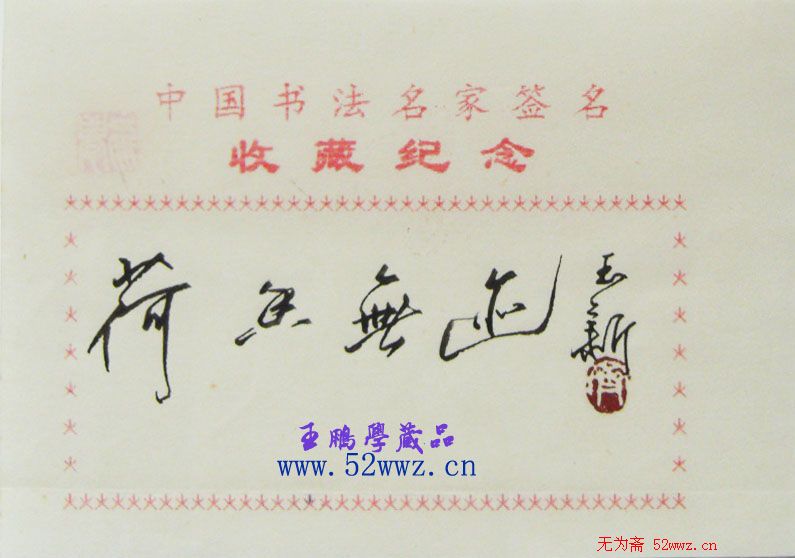 中国书法名家签名
收藏纪念
荷 無
新
王鹏學藏品
www.52wwz.cn
无为斋 52wwz.cn